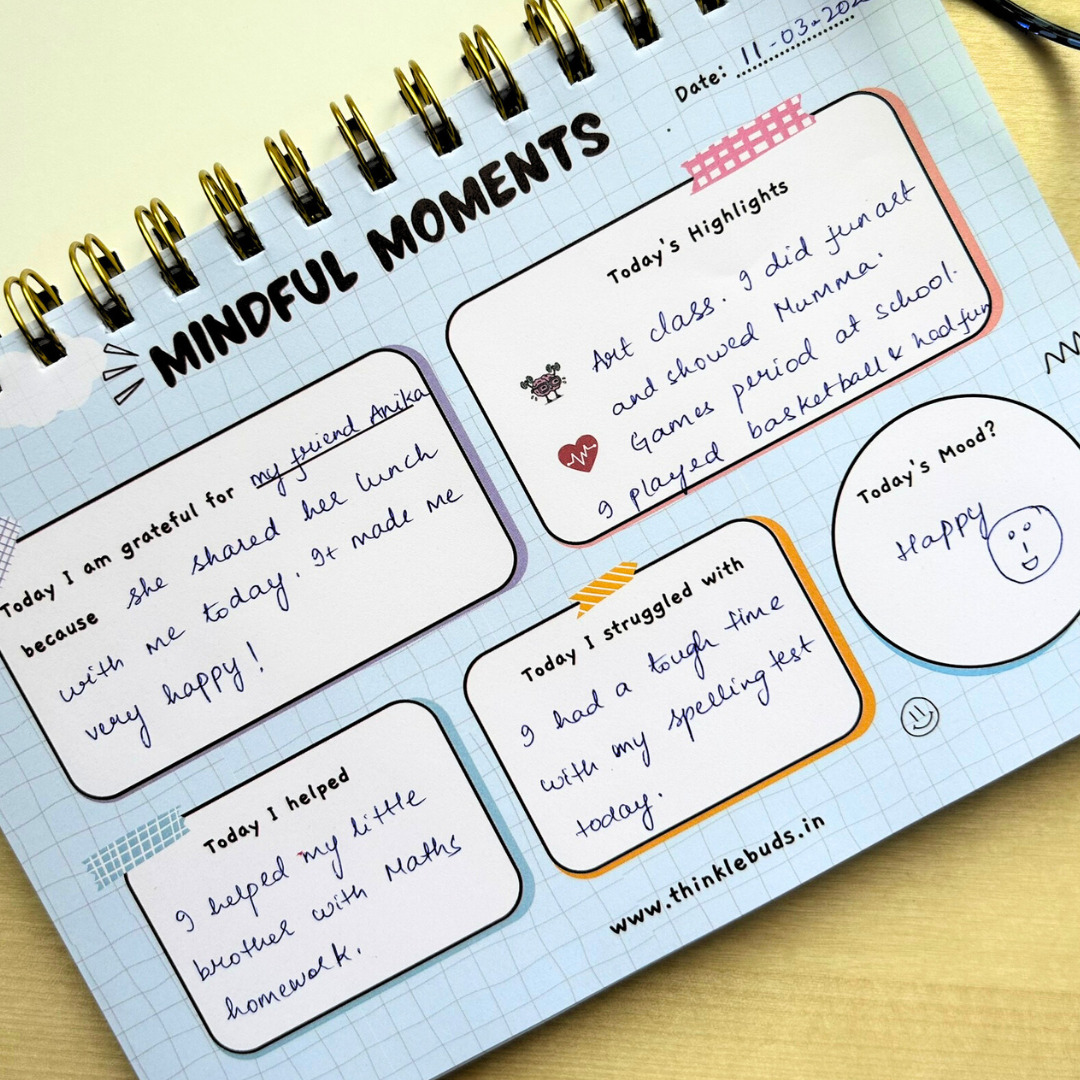 Date: 11-03-202
MINDFUL MOMENTS
Today's Highlights
Art class. I did fun art
and showed Mumma.
Games period at school.
I played basketball & had fun
Today I am grateful for my friend Anika
because she shared her lunch
with me today. It made me
very happy!
Today's Mood?
Happy
Today I struggled with
I had a tough time
with my spelling test
today.
Today I helped
I helped my little
brother with Maths
homework.
www.thinklebuds.in